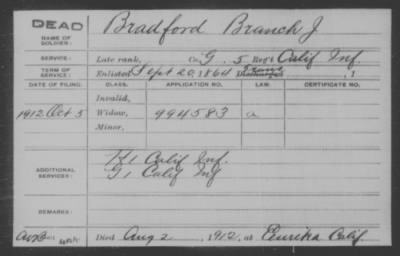 DEAD
NAME OF SOLDIER:
Bradford Branch J
SERVICE:
Late rank, Co. G, 5 Reg't Calif Inf.
TERM OF SERVICE:
Enlisted Sept 20, 1864 Discharged , 1
DATE OF FILING. CLASS. APPLICATION NO. LAW. CERTIFICATE NO.
Invalid,
1912 Oct 5 Widow, 994583 a
Minor,
ADDITIONAL SERVICES:
K 1 Calif Inf.
G 1 Calif Inf
REMARKS:
Died Aug 2, 1912, at Eureka Calif